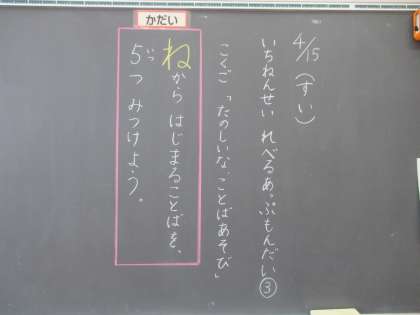 かだい
4/15(すい)
いちねんせい れべるあっぷもんだい③
こくご「たのしいな、ことばあそび」
ねから はじまることばを、
5つ みつけよう。
いつ